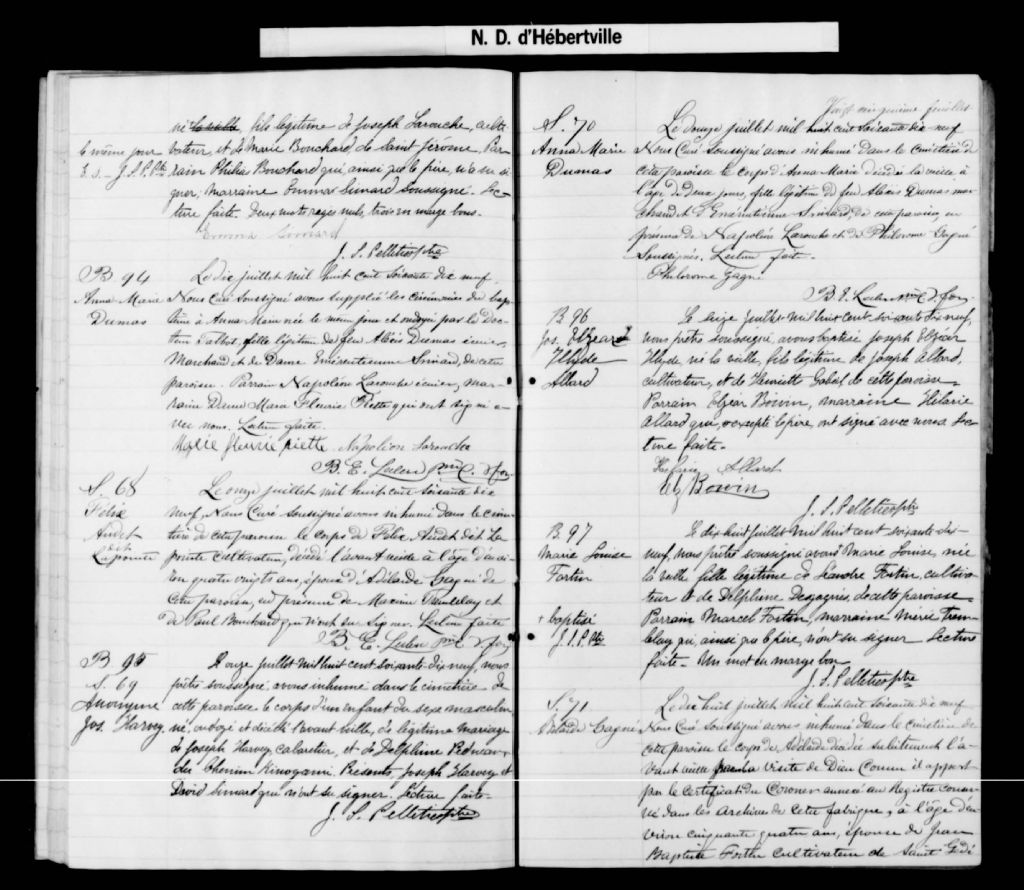 N. D. d'Hébertville
né la veille, fils légitime de Joseph Larouche, culti-
le même jour vateur, et de Marie Bouchard de Saint Jérome, Par-
J. S. P. Ptre rain Philias Bouchard qui, ainsi que le père, n'a su si-
gner, Marraine Emma Simard soussignée. Lec-
ture faite. Deux mots rayés nuls, trois en marge bons.
Emma Simard
J. S. Pelletier ptre
B 94
Anna Marie
Dumas
Le dix juillet mil huit cent soixante dix neuf
Nous Curé soussigné avons suppléé les cérémonies du bap-
tême à Anna Marie née le même jour et ondoyée par le Doc-
teur fille légitime de feu Alexis Dumas écuier
Marchand et de Dame Emérentienne Simard, de cette
paroisse. Parrain Napoléon Larouche écuier, mar-
raine Dame Marie Fleurie Piette qui ont signé a-
vec nous. Lecture faite.
Marie fleurie piette Napoléon Larouche
B. E. Leclerc Ptre C.
S. 68
Félix
Audet
dit
Lapointe
Le onze juillet mil huit cent soixante dix
neuf, Nous Curé soussigné avons inhumé dans le cime-
tière de cette paroisse le corps de Félix Audet dit La-
pointe cultivateur, décédé l'avant veille à l'âge d'envi-
ron quatre vingts ans, époux d'Adélaïde Gagné de
cette paroisse, en présence de Maxime Tremblay et
de Paul Bouchard qui n'ont su signer. Lecture faite
B. E. Leclerc Ptre C.
B 95
S. 69
Anonyme
Jos. Harvey
Le onze juillet mil huit cent soixante dix neuf, nous
prêtre soussigné avons inhumé dans le cimetière de
cette paroisse le corps d'un enfant du sexe masculin,
né, ondoyé et décédé l'avant veille, du légitime mariage
de Joseph Harvey, cabaretier, et de Delphine
du Chemin Kinogami. Présents, Joseph Harvey et
David Simard qui n'ont su signer. Lecture faite.
J. S. Pelletier ptre
Vingt cinquième feuillet
S. 70
Anna Marie
Dumas
Le douze juillet mil huit cent soixante dix neuf
Nous Curé soussigné avons inhumé dans le cimetière de
cette paroisse le corps d'Anna Marie décédée la veille à
l'âge de deux jours, fille légitime de feu Alexis Dumas mar-
chand et d'Emérentienne Simard, de cette paroisse, en
présence de Napoléon Larouche et de Philorome Gagné
soussignés. Lecture faite.
Philorome Gagné
B. E. Leclerc Ptre C.
B 96
Jos. Elzear
Clyde
Allard
Le seize juillet mil huit cent soixante dix neuf,
nous prêtre soussigné, avons baptisé Joseph Elzéar
Clyde, né la veille, fils légitime de Joseph Allard,
cultivateur, et de Henriette de cette paroisse.
Parrain Elzéar Boivin, marraine Hilarie
Allard qui, excepté le père, ont signé avec nous. Lec-
ture faite.
Allard
Elz Boivin
J. S. Pelletier ptre
B. 97
Marie Louise
Fortin
+ baptisé
J. S. P. Ptre
Le dix huit juillet mil huit cent soixante dix-
neuf, nous prêtre soussigné avons Marie Louise, née
la veille fille légitime de Léandre Fortin, cultiva-
teur et de Delphine Desgagnés, de cette paroisse.
Parrain Marcel Fortin, marraine Marie Trem-
blay qui, ainsi que le père, n'ont su signer. Lecture
faite. Un mot en marge bon
J. S. Pelletier ptre
S. 71
Adélaïde Gagné
Le dix huit juillet mil huit cent soixante dix neuf
Nous Curé soussigné avons inhumé dans le cimetière de
cette paroisse le corps de Adélaïde décédée subitement l'a-
vant veille par la visite de Dieu comme il appert
par le certificat du Coroner annexé au Registre conser-
vé dans les Archives de cette fabrique, à l'âge d'en-
viron cinquante quatre ans, épouse de Jean
Baptiste Fortin cultivateur de Saint Gédé